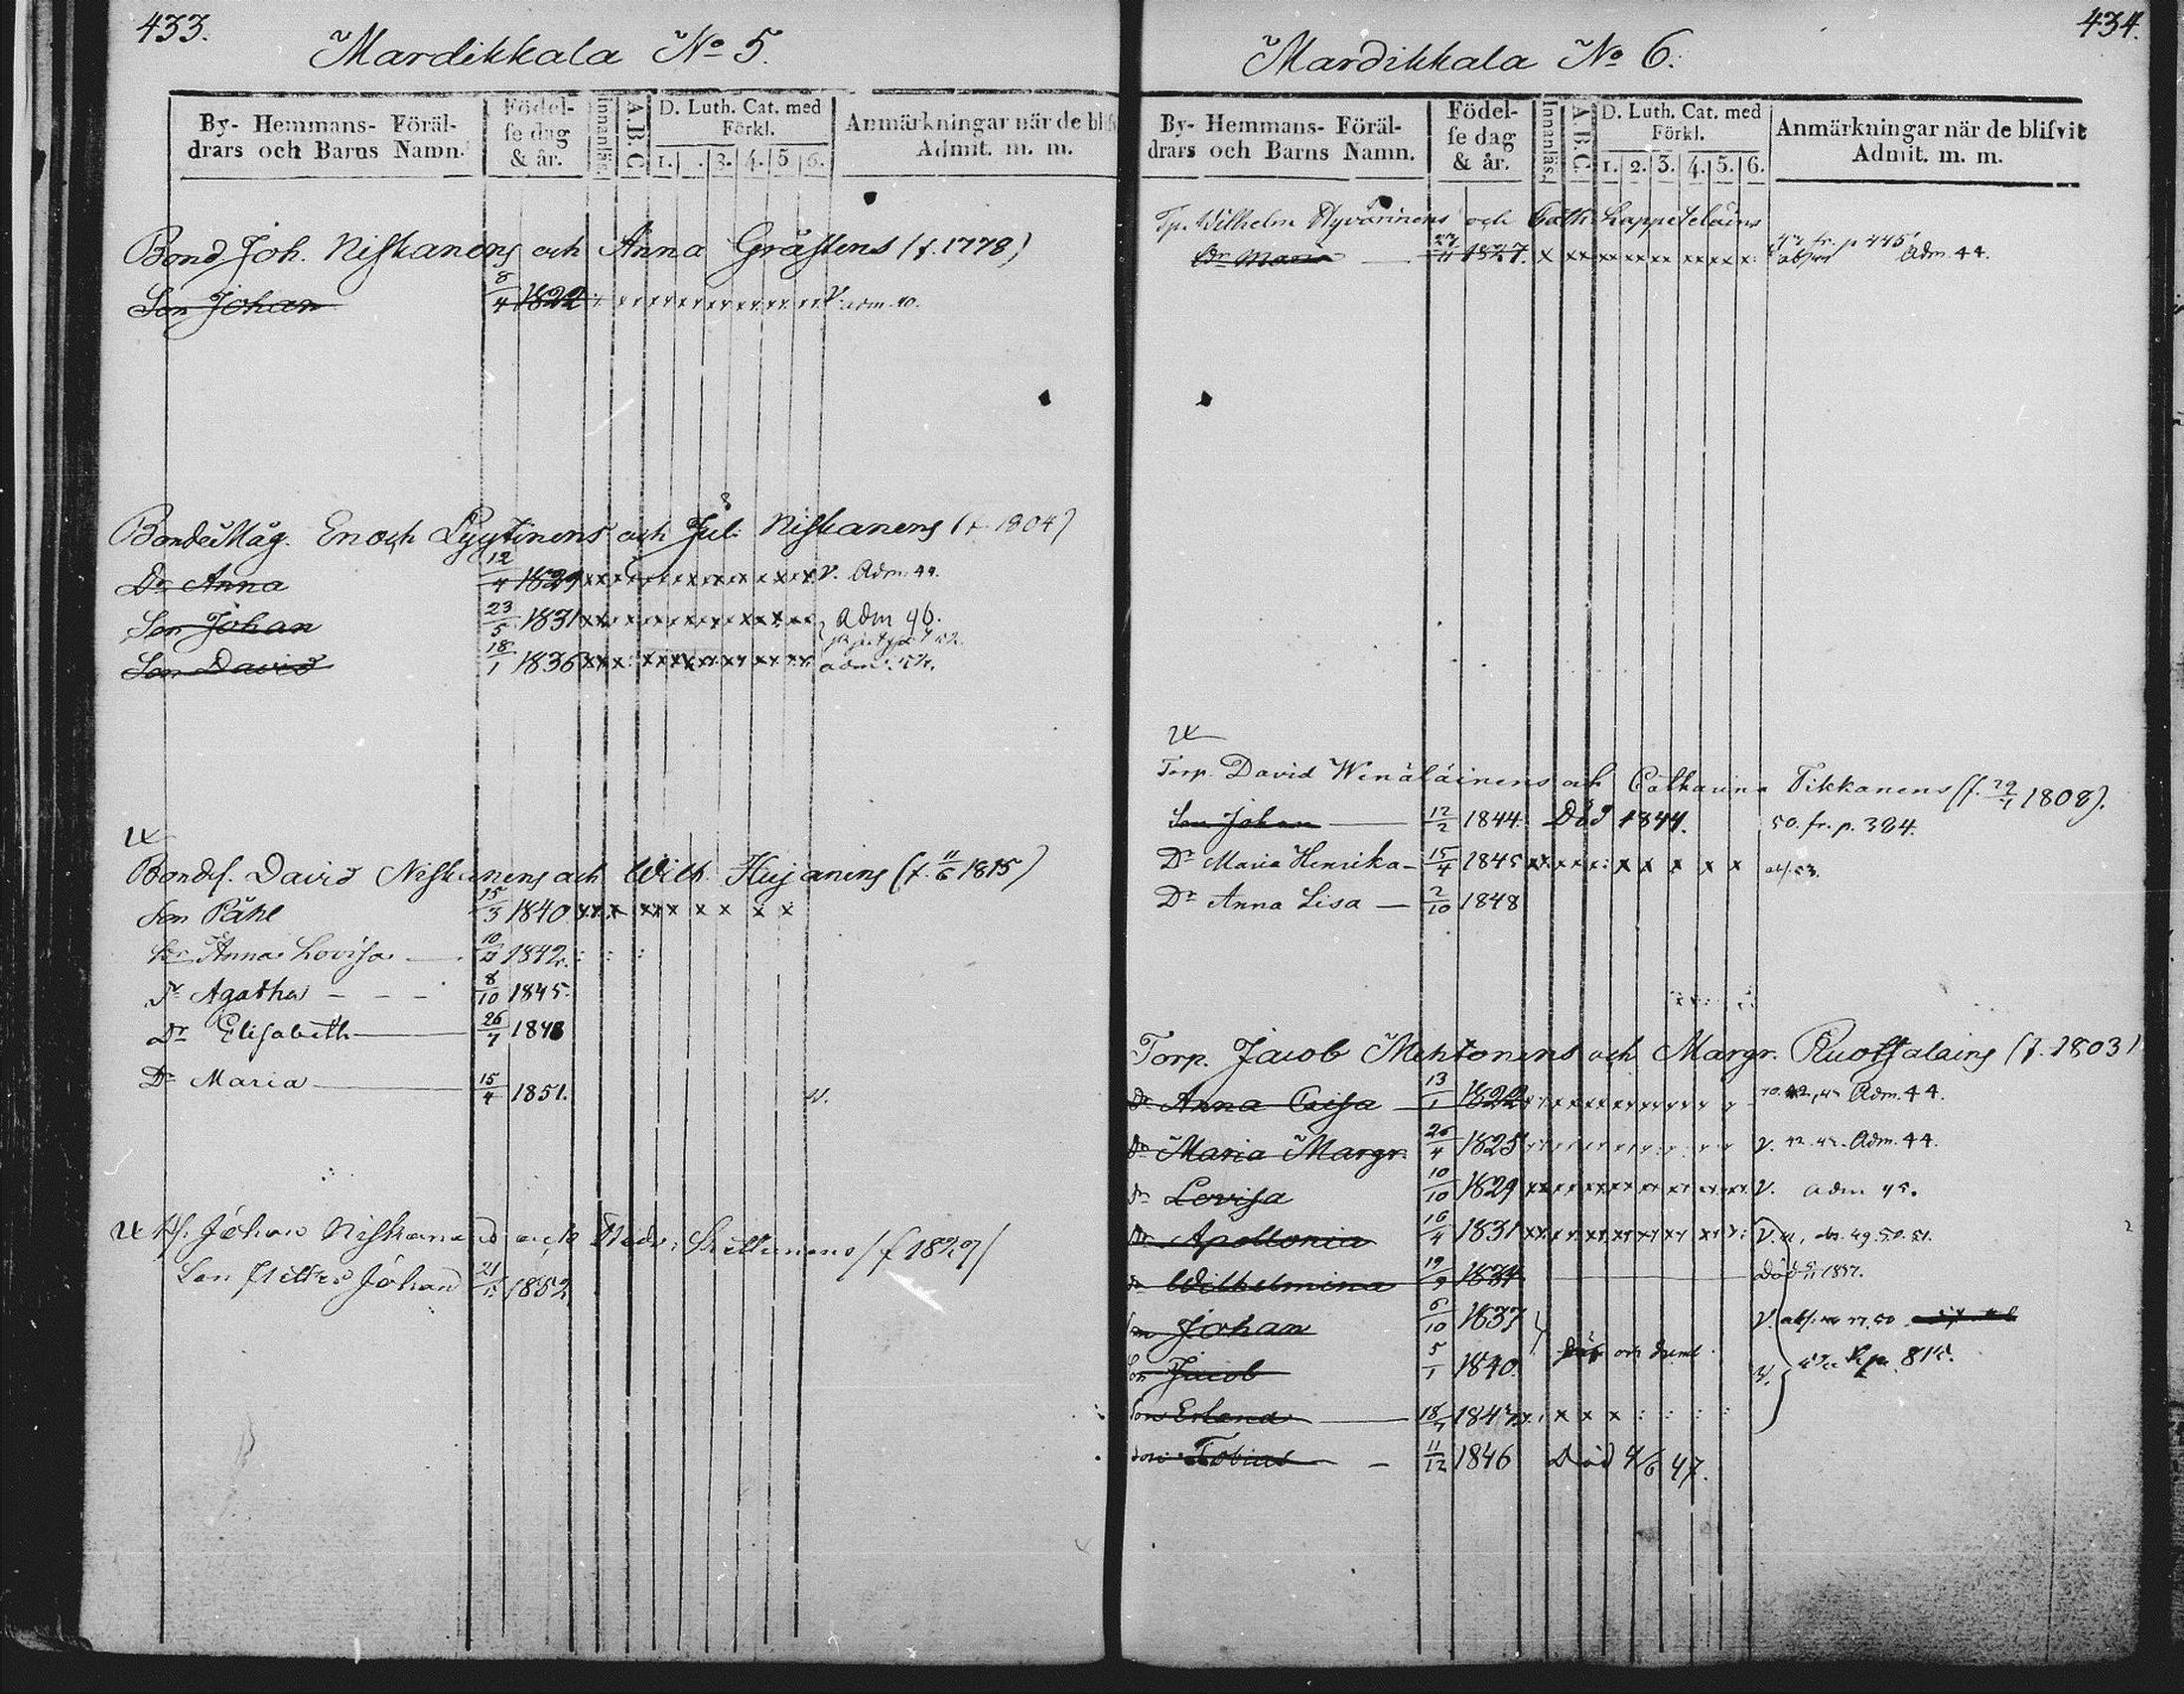 433.
Mardikkala No 5.
By- Hemmans- Föräl-
drars och Barns Namn.
Födel-
se dag
& år.
Innanläs.
A.B.C.
D. Luth. Cat. med
Förkl.
1. . 3. 4. 5 6.
Anmärkningar när de blif
Admit. m. m.
Bond Joh. Niskanens och Anna Gråstens (f. 1778)
Son Johan 8/4 1822 adm. 40.
Bonde Måg. Enoch Lyytinens och Jul. Niskanens (f. 1804)
Dr Anna 12/4 1829 xxx v. Adm. 44.
Son Johan 23/5 1831 xx Adm 46.
Son David 18/1 1836 xxx adm.
U
Bondes. David Niskanens och Wilh. Hujanens (f. 11/6 1815)
Son Påhl 15/3 1840 xxx xxx x x x x
Dr Anna Lovisa 1842
Dr Agatha 8/10 1845.
Dr Elisabeth 26/7 1848
Dr Maria 15/4 1851. v.
U Johan Niskanens och Hedv. /f 1829/
Son Petter Johan 21/ 1852
434.
Mardikkala No 6.
By- Hemmans- Föräl-
drars och Barns Namn.
Födel-
se dag
& år.
Innanläs.
A.B.C.
D. Luth. Cat. med
Förkl.
1. 2. 3. 4. 5. 6.
Anmärkningar när de blifvit
Admit. m. m.
Tp. Wilhelm Hyvärinens och Cath. Lappeteläins
Dr Maria 27/11 1827. x xx xx xx xx xx xx x: fr. p 445 Adm. 44.
U
Torp. David Wenäläinens och Catharina Tikkanens (f. 29/1 1808).
Son Johan 12/2 1844. Död 1844. 50. fr. p. 384.
Dr Maria Henrika 15/4 1845 xx x x x: x x x x x abs. 53.
Dr Anna Lisa 2/10 1848
Torp. Jacob Mehtonens och Margr. Ruotsalains (f. 1803)
Dr Anna Caisa 13/1 1822 Adm. 44.
Dr Maria Margr. 26/4 1825 v. Adm. 44.
Dr Lovisa 10/10 1829 v. adm 45.
Dr Apollonia 16/4 1831 v. abs. 49. 50. 51.
Dr Wilhelmina 19/9 1834 Död 1837.
Son Johan 6/10 1837 v. abs. 50
Son Jacob 5/1 1840. Döf och dumb v. 815.
Son Erland 18/7 184 x x x : : : :
Son Tobias 11/12 1846 Död 4/6 47.